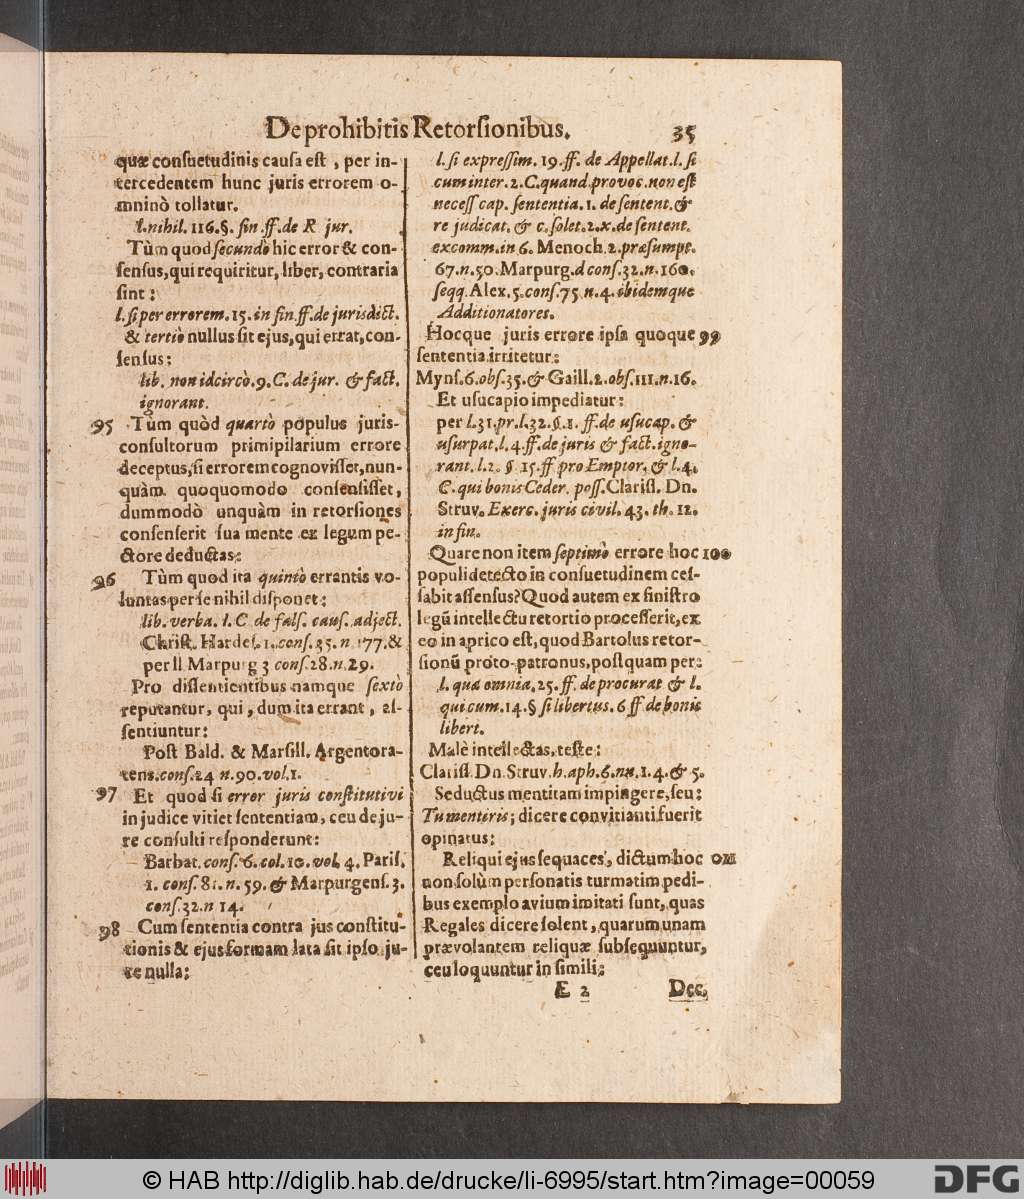 De prohibitis Retorsionibus. 35
quæ consuetudinis causa est, per in-
tercedentem hunc juris errorem o-
mninò tollatur.
l. nihil. 116. §. fin. ff. de R jur.
Tùm quod secundo hic error & con-
sensus, qui requiritur, liber, contraria
sint:
l. si per errorem. 15. in fin ff. de jurisdict.
& tertiò nullus sit ejus, qui errat, con-
sensus:
lib. non idcircò. 9. C. de jur. & fact.
ignorant.
95 Tùm quòd quartò populus juris-
consultorum primipilarium errore
deceptus, si errorem cognovisset, nun-
quàm quoquomodo consensisset,
dummodò unquàm in retorsiones
consenserit sua mente ex legum pe-
ctore deductas:
96 Tùm quod ita quintò errantis vo-
luntas per se nihil disponet:
lib. verba. 1. C de fals. caus. adject.
Christ. Hardes. 1. cons. 35. n 177. &
per ll Marpurg 3 cons. 28. n. 29.
Pro dissentientibus namque sextò
reputantur, qui, dum ita errant, as-
sentiuntur:
Post Bald. & Marsill. Argentora-
tens. cons. 24 n. 90. vol. 1.
97 Et quod si error juris constitutivi
in judice vitiet sententiam, ceu de ju-
re consulti responderunt:
Barbat. cons. 6. col. 10. vol. 4. Paris.
1. cons. 81. n. 59. & Marpurgens. 3.
cons. 32. n 14.
98 Cum sententia contra jus constitu-
tionis & ejus formam lata sit ipso ju-
re nulla:
l. si expressim. 19. ff. de Appellat. l. si
cum inter. 2. C. quand provoc. non est
necess cap. sententia. 1. de sentent. &
re judicat. & c. solet. 2. x. de sentent.
excomm. in 6. Menoch. 2. præsumpt.
67. n. 50. Marpurg. d cons. 32. n. 160.
seqq. Alex. 5. cons. 75 n. 4. ibidemque
Additionatores.
Hocque juris errore ipsa quoque 99
sententia irritetur:
Myns. 6. obs. 35. & Gaill. 2. obs. 111. n. 16.
Et usucapio impediatur:
per l. 31. pr. l. 32. §. 1. ff. de usucap. &
usurpat. l. 4. ff. de juris & fact. igno-
rant. l. 2. § 15. ff pro Emptor. & l. 4.
C. qui bonis Ceder. poss. Clariss. Dn.
Struv. Exerc. juris civil. 43. th. 12.
in fin.
Quare non item septimò errore hoc 100
populi detecto in consuetudinem ces-
sabit assensus? Quod autem ex sinistro
legū intellectu retortio processerit, ex
eo in aprico est, quod Bartolus retor-
sionū proto-patronus, postquam per:
l. qua omnia. 25. ff. de procurat & l.
qui cum. 14. § si libertus. 6 ff de bonis
libert.
Malè intellectas, teste:
Clariss Dn. Struv. h. aph. 6. nn. 1. 4. & 5.
Seductus mentitam impingere, seu:
Tu mentiris; dicere convitianti fuerit
opinatus:
Reliqui ejus sequaces, dictum hoc
non solùm personatis turmatim pedi-
bus exemplo avium imitati sunt, quas
Regales dicere solent, quarum unam
prævolantem reliquæ subsequuntur,
ceu loquuntur in simili:
E 2 Dec.
© HAB http://diglib.hab.de/drucke/li-6995/start.htm?image=00059
DFG